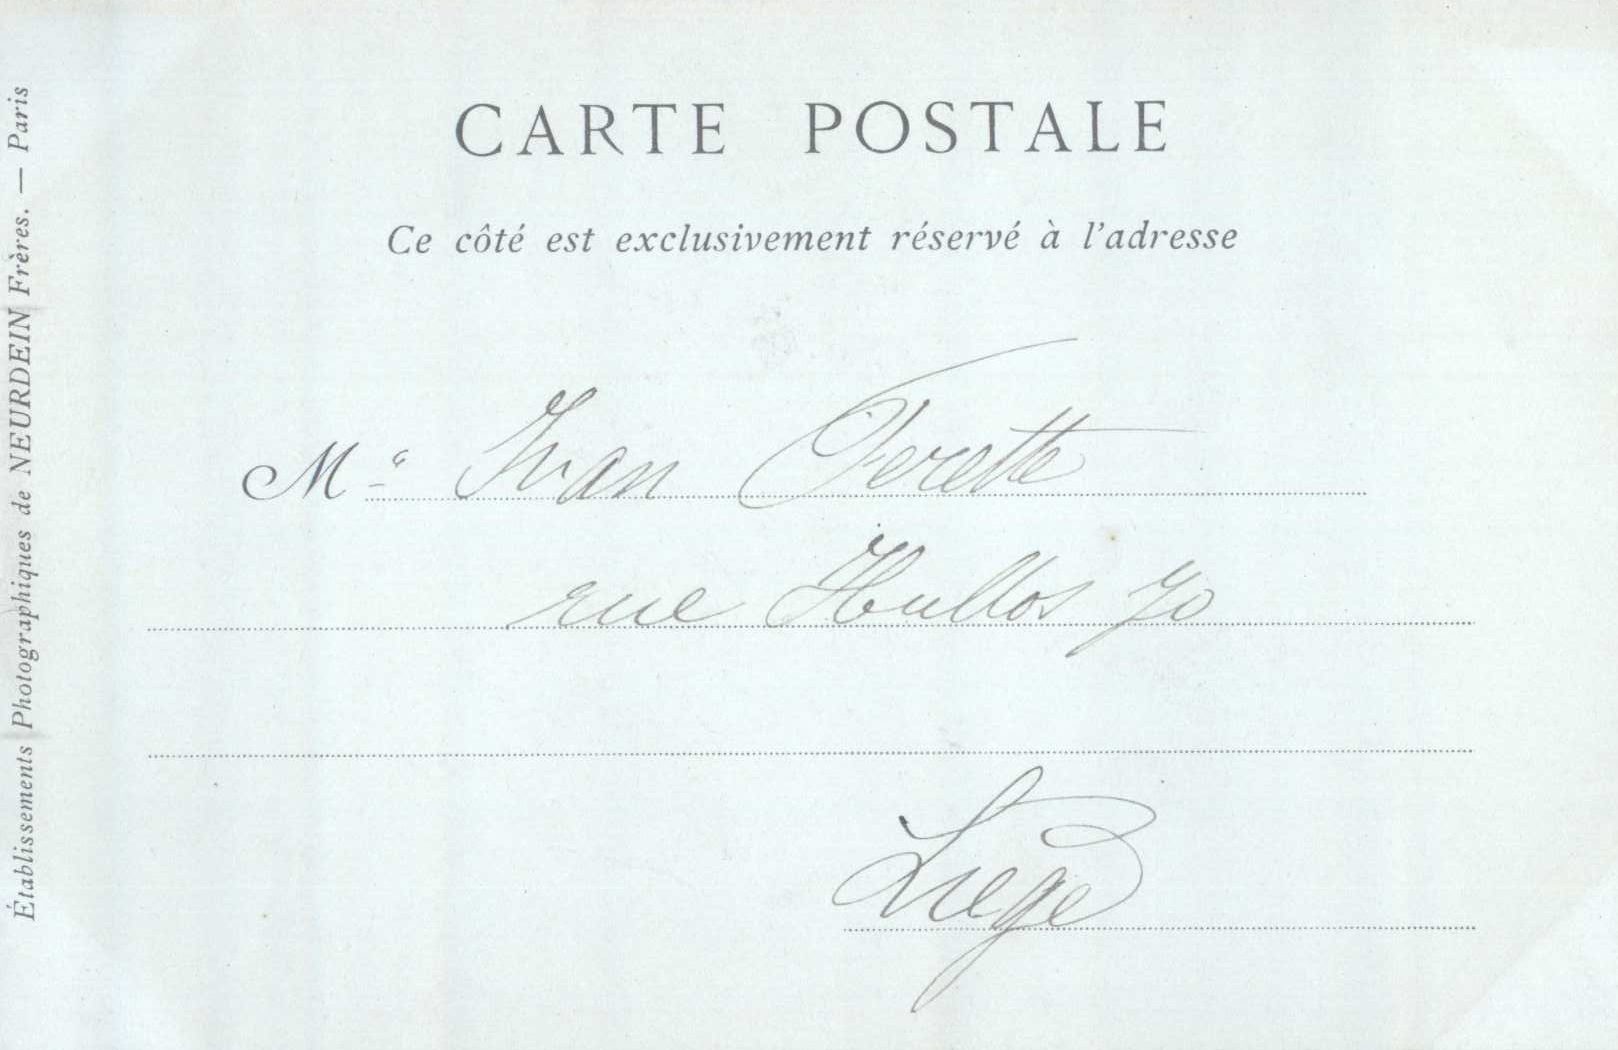 CARTE POSTALE
Ce côté est exclusivement réservé à l'adresse
M Ivan Ferette
rue Hullos 70
Liège
Établissements Photographiques de NEURDEIN Frères. — Paris